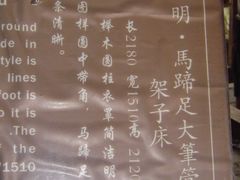 明·馬蹄足大筆管
架子床
长2180 宽1510高 2120
榉木圆柱衣罩简洁明
图样圆中带角，马蹄足
条清晰。
round
ade in
tyle is
lines
foot is
o it is
.The
1510